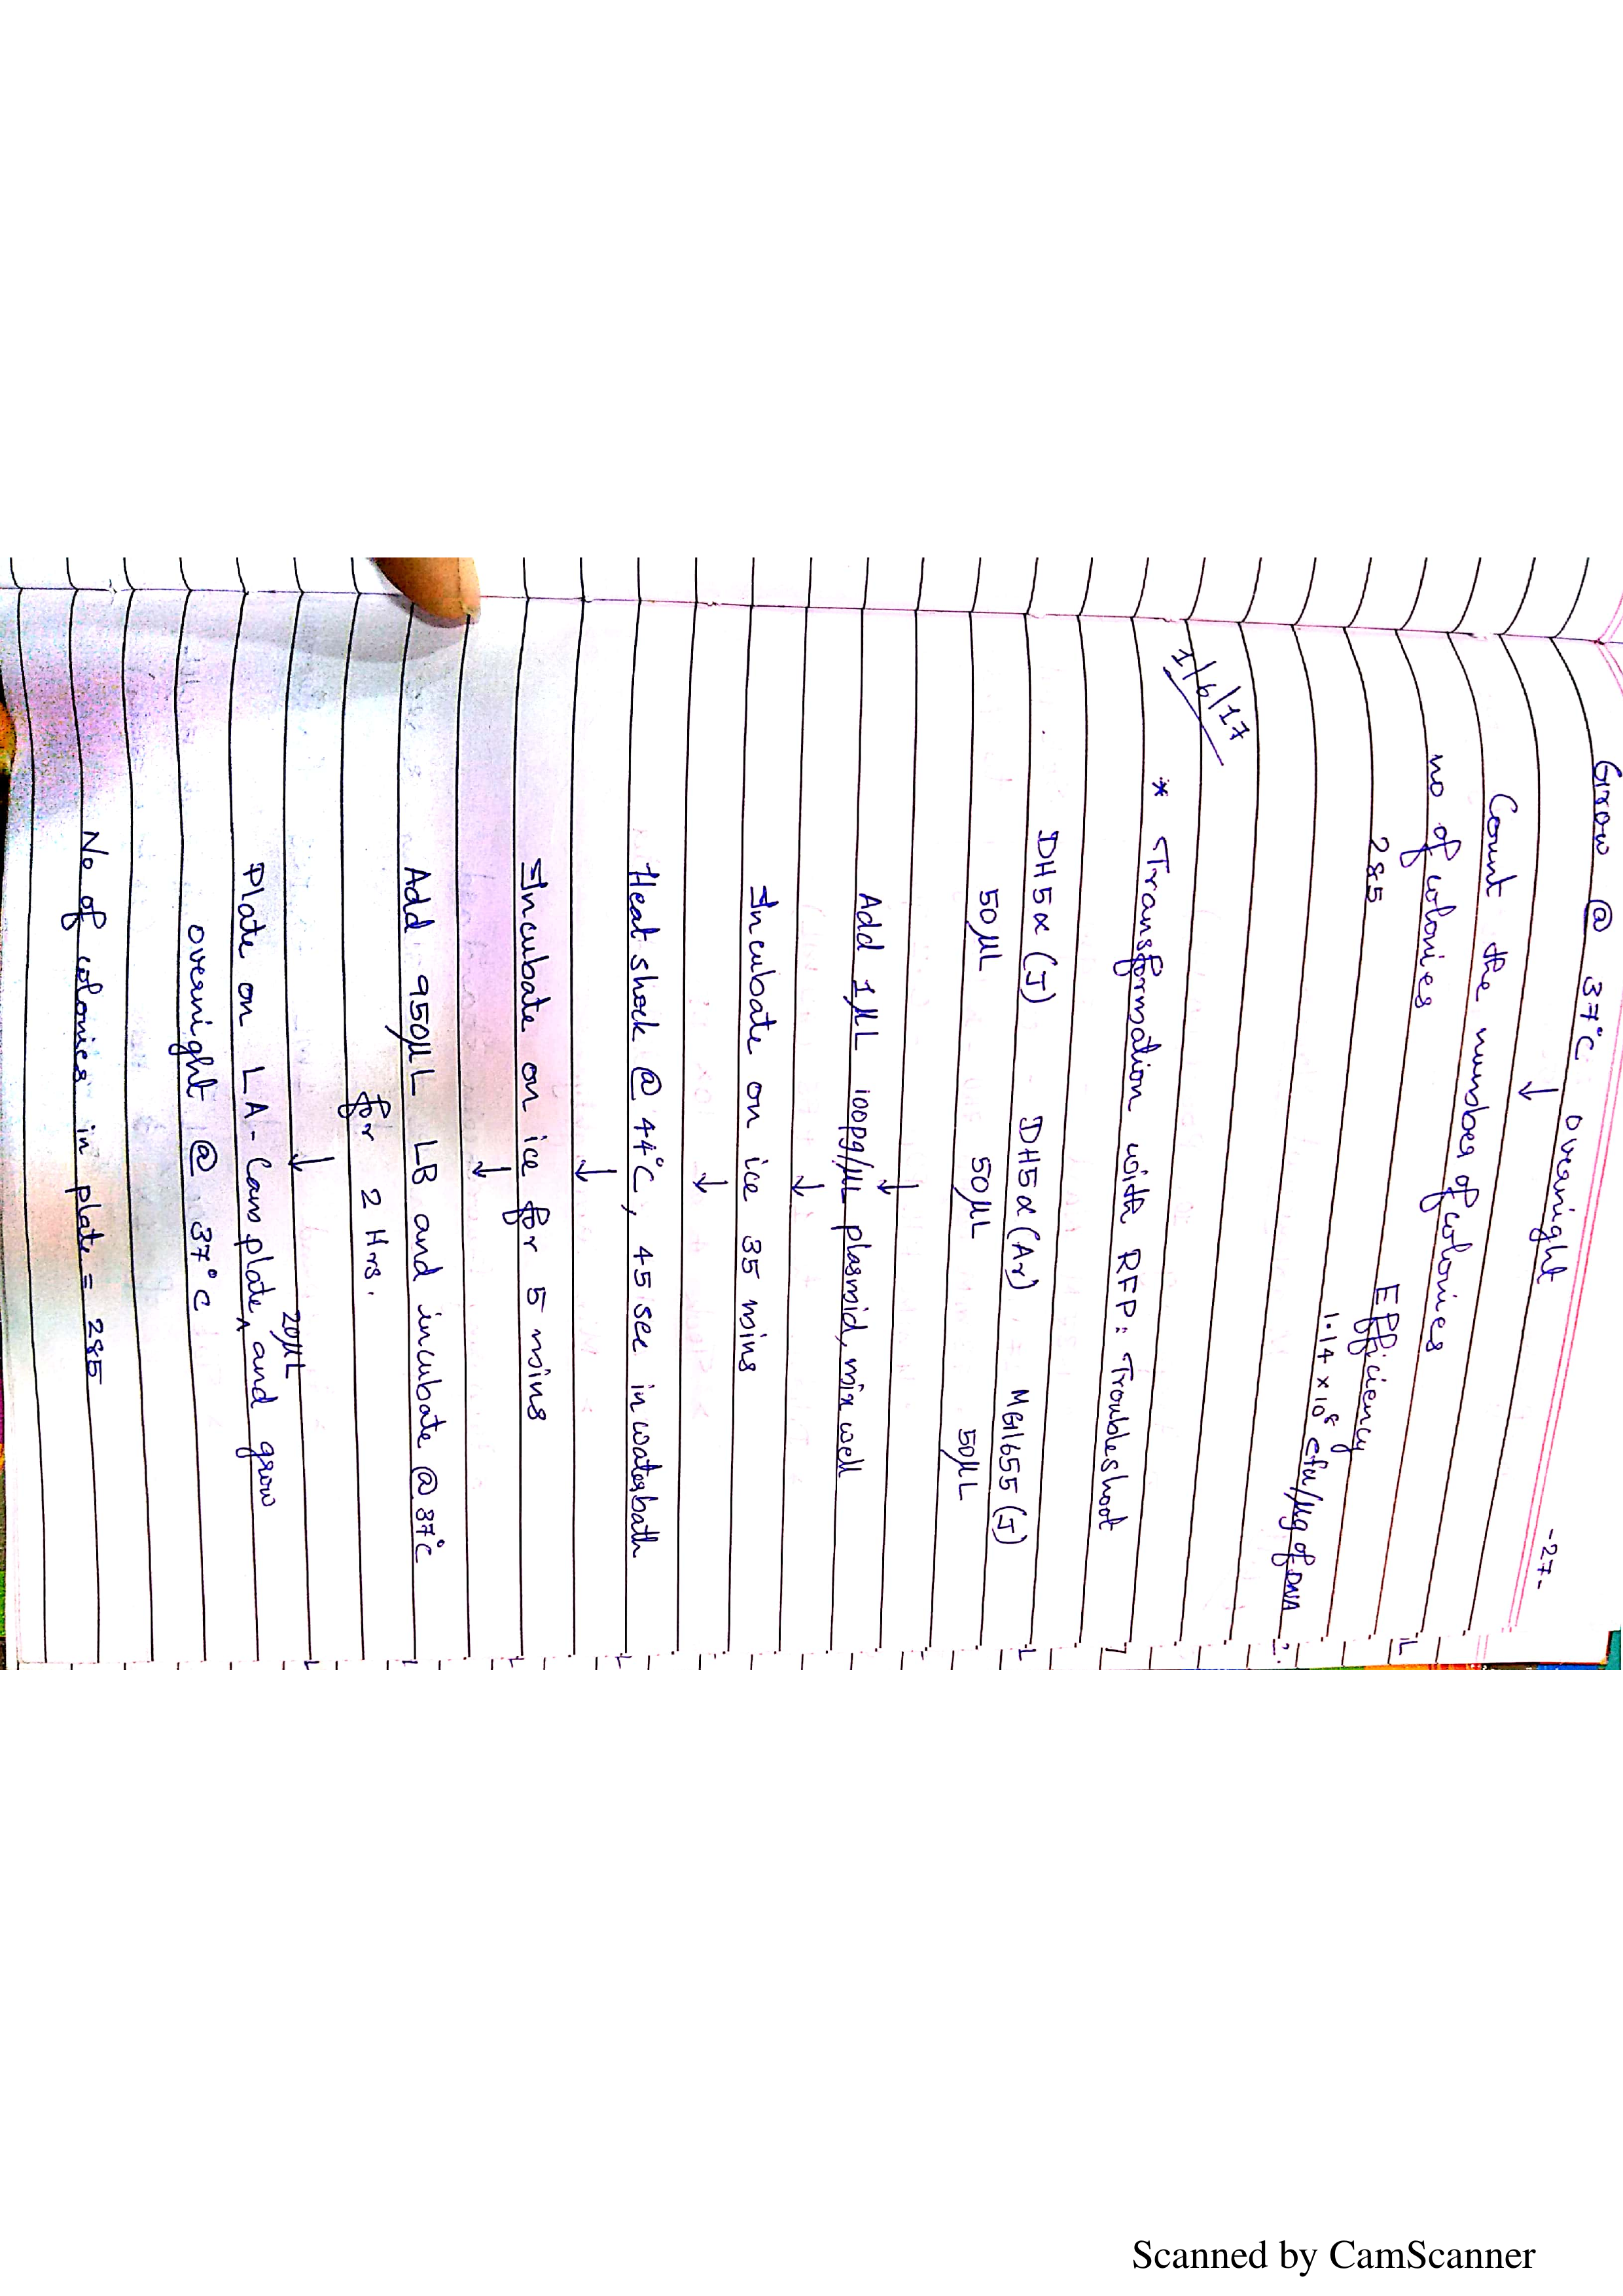 -27-
Grow @ 37°C overnight
↓
Count the number of colonies
no of colonies Efficiency
285 1.14 x 10⁸ cfu/μg of DNA
1/6/17
* Transformation with RFP: Troubleshoot
DH5α (J) DH5α (Ar) MG1655 (J)
50μL 50μL 50μL
↓
Add 1μL 100pg/μL plasmid, mix well
↓
Incubate on ice 35 mins
↓
Heat shock @ 44°C, 45 sec in waterbath
↓
Incubate on ice for 5 mins
↓
Add 950μL LB and incubate @ 37°C
for 2 Hrs.
↓
20μL
Plate on LA-Cam plate ^ and grow
overnight @ 37°C
No of colonies in plate = 285
Scanned by CamScanner